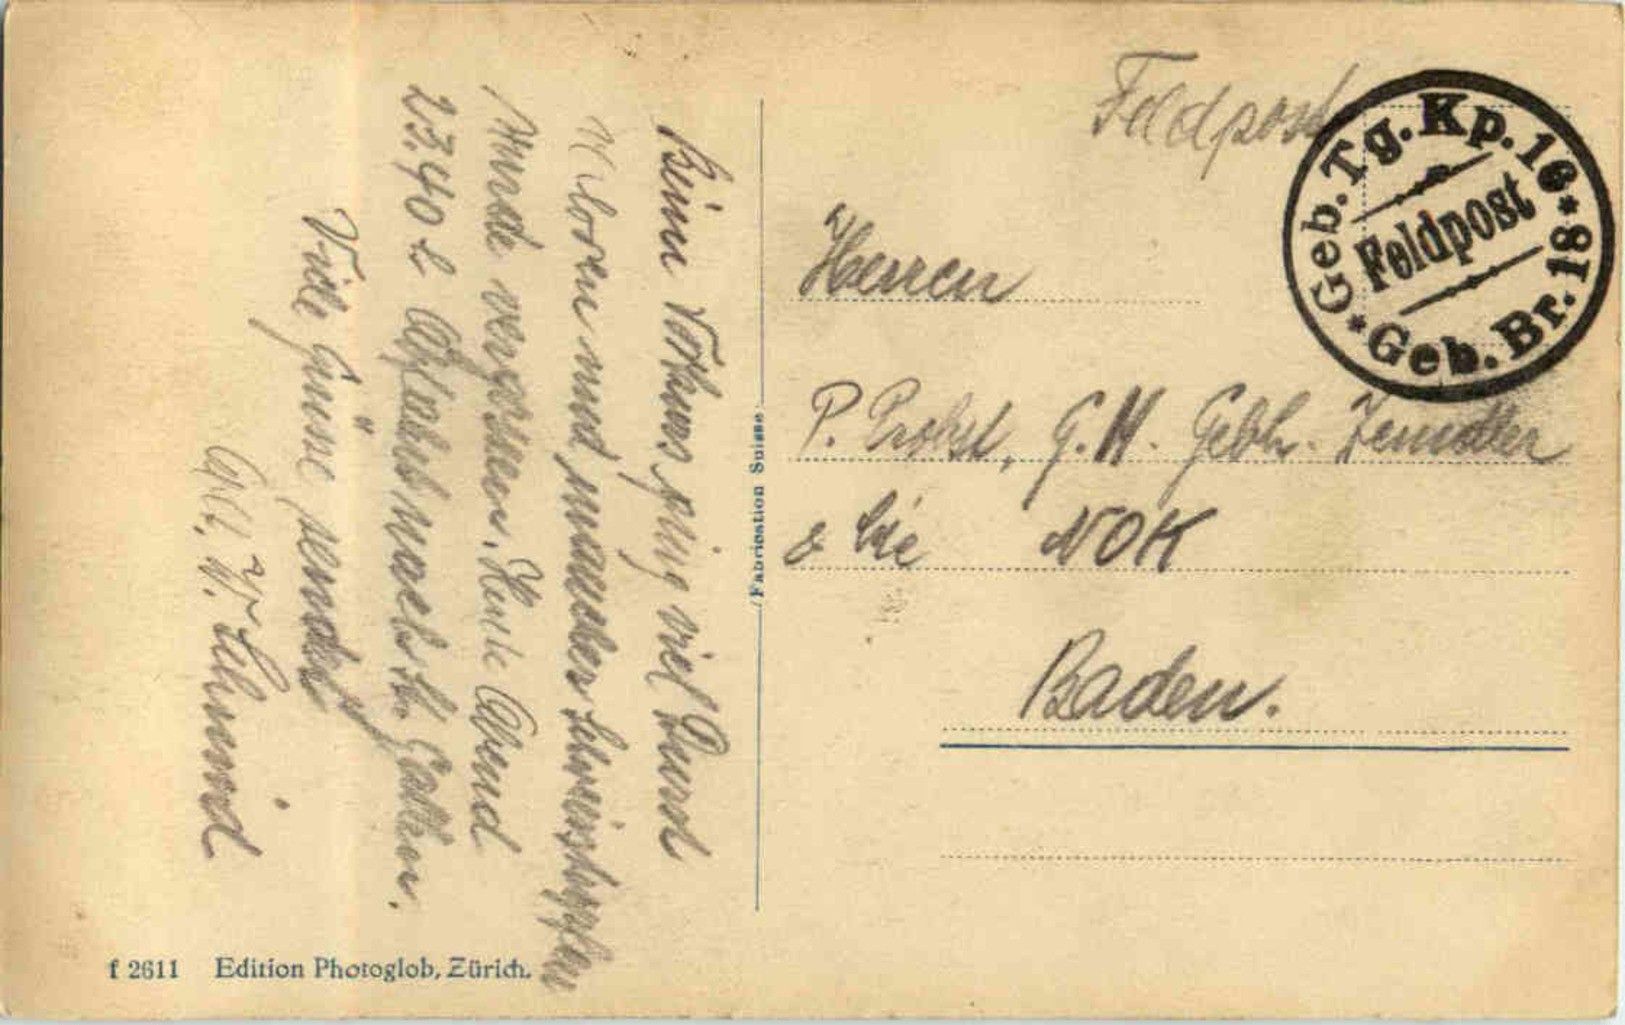 Beim Vorkurs ging viel Durst
verloren und mancher Schweisstropfen
wurde vergossen. Heute Abend
23.40 h Abfahrt nach St. Gallen.
Viele Grüsse sendet
W. Schmid
Feldpost
Herren
P. Probst, G. H. Gebhr.
& Cie NOK
Baden.
Geb. Tg. Kp. 16 * Geb. Br. 18 *
Feldpost
Fabrication Suisse
f 2611 Edition Photoglob, Zürich.